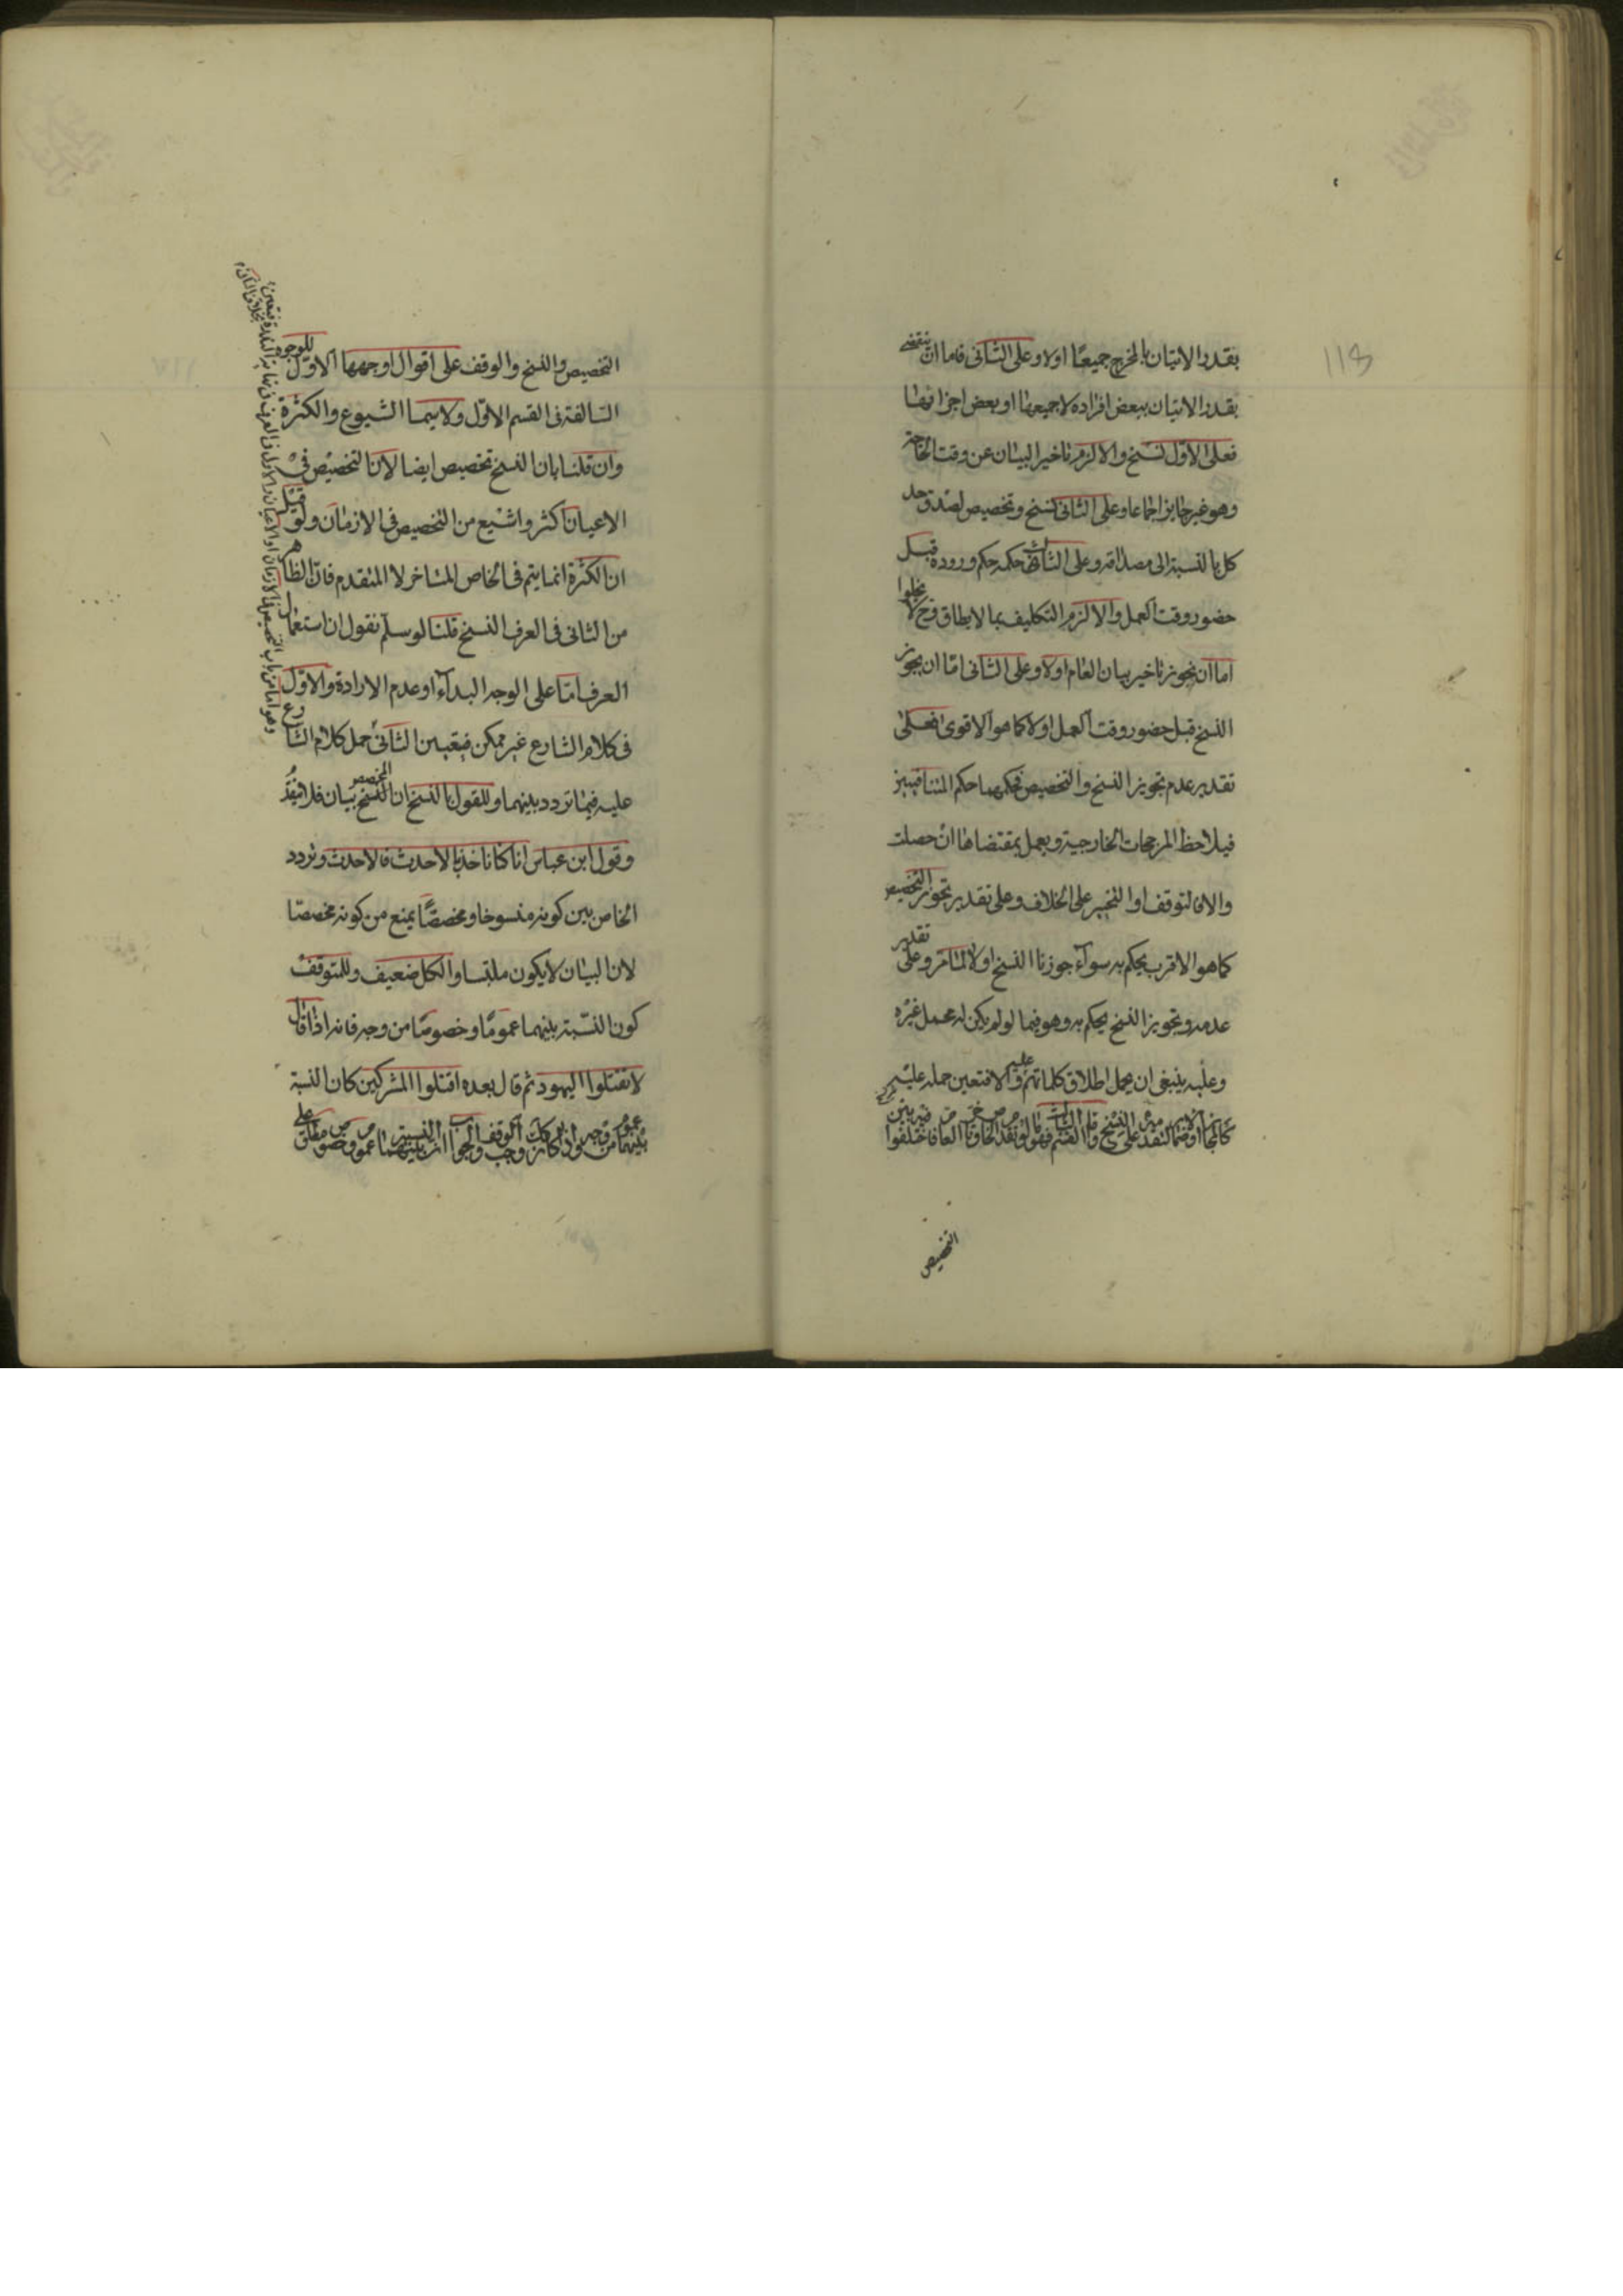 118
بقدر الاتيان بالمخرج جميعًا اولا وعلى الثانى فاما ان ينقضى
بقدر الاتيان ببعض افراده لا جميعها او بعض اجزائها
فعلى الاول نسخ والا لزم تاخير البيان عن وقت الحاجة
وهو غير جايز اجماعا وعلى الثانى نسخ وتخصيص لصدق حد
كل بالنسبة الى مصداقه وعلى الثالث حكمه حكم وروده قبل
حضور وقت العمل والا لزم التكليف بما لا يطاق وح لا يخلوا
اما ان نجوز تاخير بيان العام اولا وعلى الثانى امّا ان يجوز
النسخ قبل حضور وقت العمل اولا كما هو الاقوى فعلى
تقدير عدم تجويز النسخ والتخصيص فحكمهما حكم المتنافيين
فيلاحظ المرجحات الخارجية ويعمل بمقتضاها ان حصلت
والا فالتوقف او التخير على الخلاف وعلى تقدير تجويز التخصيص
كما هو الاقرب يحكم به سوآء جوزنا النسخ اولا لما مر وعلى تقدير
عدمه وتجويز النسخ يحكم به وهو فيما لو لم يكن له محمل غيره
وعليه ينبغى ان يحمل اطلاق كلماتهم والا فتعين حمله عليه
التخصيص
التخصيص والنسخ والوقف على اقوال اوجهها الاول للوجوه
السالفة فى القسم الاول ولا سيما الشيوع والكثرة
وان قلنا بان النسخ تخصيص ايضا لان التخصيص فى
الاعيان اكثر واشيع من التخصيص فى الازمان ولو قيل
ان الكثرة انما يتم فى الخاص المتاخر لا المتقدم فان الظاهر
من الثانى فى العرف النسخ قلنا لو سلم نقول ان استعمال
العرف امّا على الوجه البدآء او عدم الارادة والاول
فى كلام الشارع غير ممكن فيتعين الثانى حمل كلام الشارع
عليه فيما تردد بينهما وللقول بالنسخ ان المخصص بيان فلا يتقدم
وقول ابن عباس انا كنا ناخذ بالاحدث فالاحدث وتردد
الخاص بين كونه منسوخا ومخصصًا يمنع من كونه مخصصًا
لان البيان لا يكون ملتبسا والكل ضعيف وللمتوقف
كون النسبة بينهما عمومًا وخصوصًا من وجه فانه اذا قال
لا تقتلوا اليهود ثم قال بعده اقتلوا المشركين كان النسبة